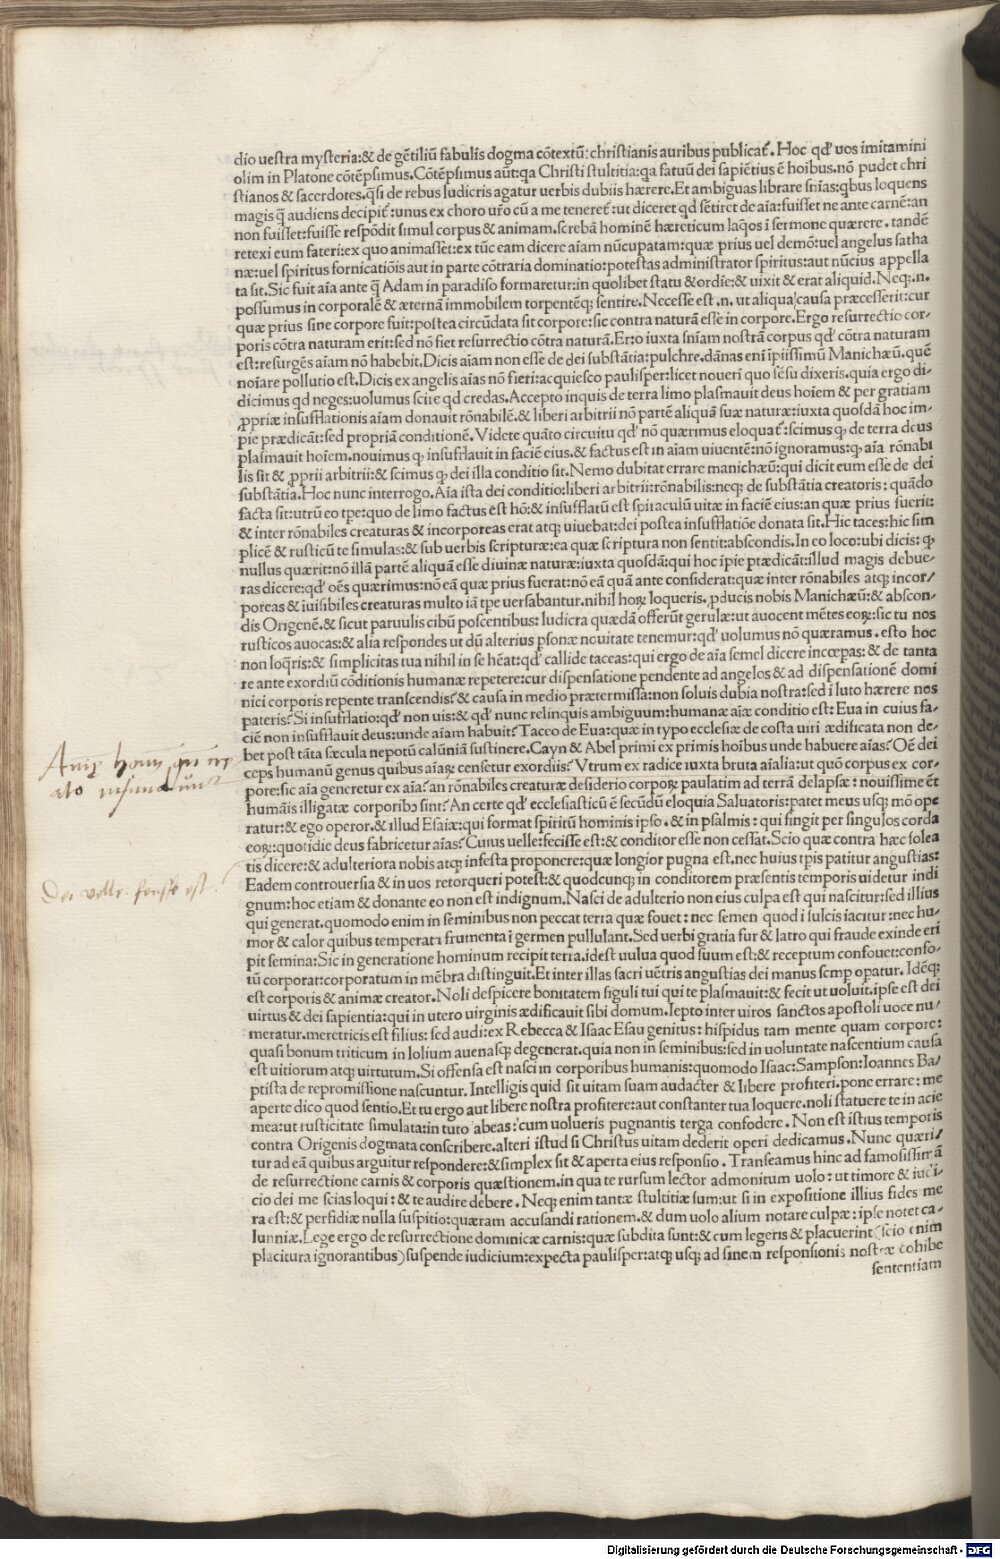 dio uestra mysteria:& de gētiliū fabulis dogma cōtextū:christianis auribus publicat᷑. Hoc qd' uos imitamini
olim in Platone cōtēpsimus. Cōtēpsimus aūt:qa Christi stultitia:qa fatuū dei sapiētius ē hoibus.nō pudet chri
stianos & sacerdotes.q̄si de rebus ludicris agatur uerbis dubiis hærere.Et ambiguas librare sn̄ias:qbus loquens
magis q̄ audiens decipit᷑:unus ex choro uro cū a me teneret᷑:ut diceret qd sētiret de aīa:fuisset ne ante carnē:an
non fuisset:fuisse respōdit simul corpus & animam.screbā hominē hæreticum laq̄os ī sermone quærere.tandē
retexi eum fateri:ex quo animasset:ex tūc eam dicere aīam nūcupatam:quæ prius uel demō:uel angelus satha
næ:uel spiritus fornicatiōis aut in parte cōtraria dominatio:potestas administrator spiritus:aut nūcius appella
ta sit.Sic fuit aīa ante q̄ Adam in paradiso formaretur:in quolibet statu & ordīe:& uixit & erat aliquid.Neq;.n.
possumus in corporalē & æternā immobilem torpentēq; sentire.Necesse est.n.ut aliqua causa præcesserit:cur
quæ prius sine corpore fuit:postea circūdata sit corpore:sic contra naturā esse in corpore.Ergo resurrectio cor-
poris cōtra naturam erit:sed nō fiet resurrectio cōtra naturā.Er:o iuxta sn̄iam nostrā corpus qd' cōtra naturam
est:resurgēs aīam nō habebit.Dicis aīam non esse de dei substātia:pulchre.dānas enī ipissimū Manichæū.quē
noīare pollutio est.Dicis ex angelis aīas nō fieri:acquiesco paulisper:licet noueri quo sēsu dixeris.quia ergo di-
dicimus qd neges:uolumus scire qd credas.Accepto inquis de terra limo plasmauit deus hoīem & per gratiam
ꝓpriæ insufflationis aīam donauit rōnabilē.& liberi arbitrii nō partē aliquā suæ naturæ:iuxta quosdā hoc im-
pie prædicāt:sed propriā conditionē.Videte quāto circuitu qd' nō quærimus eloquat᷑:scimus ꝙ de terra deus
plasmauit hoīem.nouimus ꝙ insufflauit in faciē eius.& factus est in aīam uiuentē:nō ignoramus:ꝙ aīa rōnabi
lis sit & ꝓprii arbitrii:& scimus ꝙ dei illa conditio sit.Nemo dubitat errare manichæū:qui dicit eum esse de dei
substātia.Hoc nunc interrogo.Aīa ista dei conditio:liberi arbitrii:rōnabilis:neq; de substātia creatoris:quādo
facta sit:utrū eo tpe:quo de limo factus est hō:& insufflatū est spiraculū uitæ in faciē eius:an quæ prius fuerit:
& inter rōnabiles creaturas & incorporeas erat atq; uiuebat:dei postea insufflatiōe donata sit.Hic taces:hic sim
plicē & rusticū te simulas:& sub uerbis scripturæ:ea quæ scriptura non sentit:abscondis.In eo loco:ubi dicis: ꝙ
nullus quærit:nō illā partē aliquā esse diuinæ naturæ:iuxta quosdā:qui hoc īpie prædicāt:illud magis debue-
ras dicere:qd' oēs quærimus:nō eā quæ prius fuerat:nō eā quā ante considerat:quæ inter rōnabiles atq; incor/
poreas & īuisibiles creaturas multo iā tpe uersabantur.nihil hoꝝ loqueris.ꝓducis nobis Manichæū:& abscon-
dis Origenē.& sicut paruulis cibū poscentibus: ludicra quædā offerūt gerulæ:ut auocent mētes eoꝝ:sic tu nos
rusticos auocas:& alia respondes ut dū alterius psonæ nouitate tenemur:qd' uolumus nō quæramus.esto hoc
non loq̄ris:& simplicitas tua nihil in se hēat:qd' callide taceas:qui ergo de aīa semel dicere incœpas: & de tanta
re ante exordiū cōditionis humanæ repetere:cur dispensatione pendente ad angelos & ad dispensationē domi
nici corporis repente transcendis? & causa in medio prætermissa:non soluis dubia nostra:sed ī luto hærere nos
pateris?Si insufflatio:qd' non uis:& qd' nunc relinquis ambiguum:humanæ aīæ conditio est: Eua in cuius fa-
ciē non insufflauit deus:unde aīam habuit?Tacco de Eua:quæ in typo ecclesiæ de costa uiri ædificata non de-
bet post tāta sæcula nepotū calūniā sustinere.Cayn & Abel primi ex primis hoibus unde habuere aīas?Oē dei
ceps humanū genus quibus aīaꝝ censetur exordiis?Vtrum ex radice iuxta bruta aīalia:ut quō corpus ex cor-
pore:sic aīa generetur ex aīa?an rōnabiles creaturæ desiderio corporꝝ paulatim ad terrā delapsæ: nouissime ēt
humāis illigatæ corporibꝰ sint?An certe qd' ecclesiasticū ē secūdū eloquia Saluatoris:patet meus usq; mō ope
ratur:& ego operor.& illud Esaiæ:qui format spiritū hominis ipso.& in psalmis: qui fingit per singulos corda
eoꝝ:quotidie deus fabricetur aīas?Cuius uelle:fecisse est:& conditor esse non cessat.Scio quæ contra hæc solea
tis dicere:& adulteriora nobis atq; infesta proponere:quæ longior pugna est.nec huius tpis patitur angustias:
Eadem controuersia & in uos retorqueri potest:& quodcunq; in conditorem præsentis temporis uidetur indi
gnum:hoc etiam & donante eo non est indignum.Nasci de adulterio non eius culpa est qui nascitur:sed illius
qui generat.quomodo enim in seminibus non peccat terra quæ fouet: nec semen quod ī sulcis iacitur:nec hu-
mor & calor quibus temperata frumenta ī germen pullulant.Sed uerbi gratia fur & latro qui fraude exinde eri
pit semina:Sic in generatione hominum recipit terra.idest uulua quod suum est:& receptum confouet:confo-
tū corporat:corporatum in mēbra distinguit.Et inter illas sacri uētris angustias dei manus semp opatur. Idēq;
est corporis & animæ creator.Noli despicere bonitatem figuli tui qui te plasmauit:& fecit ut uoluit.ipse est dei
uirtus & dei sapientia:qui in utero uirginis ædificauit sibi domum.Iepto inter uiros sanctos apostoli uoce nu/
meratur.meretricis est filius: sed audi:ex Rebecca & Isaac Esau genitus: hispidus tam mente quam corpore:
quasi bonum triticum in lolium auenasq; degenerat.quia non in seminibus:sed in uoluntate nascentium causa
est uitiorum atq; uirtutum.Si offensa est nasci in corporibus humanis:quomodo Isaac:Sampson:Ioannes Ba/
ptista de repromissione nascuntur.Intelligis quid sit uitam suam audacter & libere profiteri.pone errare: me
aperte dico quod sentio.Et tu ergo aut libere nostra profitere:aut constanter tua loquere.noli statuere te in acie
mea:ut rusticitate simulata:in tuto abeas:cum uolueris pugnantis terga confodere. Non est istius temporis
contra Origenis dogmata conscribere.alteri istud si Christus uitam dederit operi dedicamus.Nunc quæri/
tur ad eā quibus arguitur respondere:& simplex sit & aperta eius responsio. Transeamus hinc ad famosissimā
de resurrectione carnis & corporis quæstionem.in qua te rursum lector admonitum uolo:ut timore & iudi-
cio dei me scias loqui:& te audire debere.Neq; enim tantæ stultitiæ sum:ut si in expositione illius fides me
ra est:& perfidiæ nulla suspitio:quæram accusandi rationem.& dum uolo alium notare culpæ:ipse notet ca-
lunniæ.Lege ergo de resurrectione dominicæ carnis:quæ subdita sunt:& cum legeris & placuerint (scio enim
placitura ignorantibus) suspende iudicium:expecta paulisper:atq; usq; ad finem responsionis nostræ cohibe
sententiam
Dei velle: fecisse est.
Digitalisierung gefördert durch die Deutsche Forschungsgemeinschaft - DFG